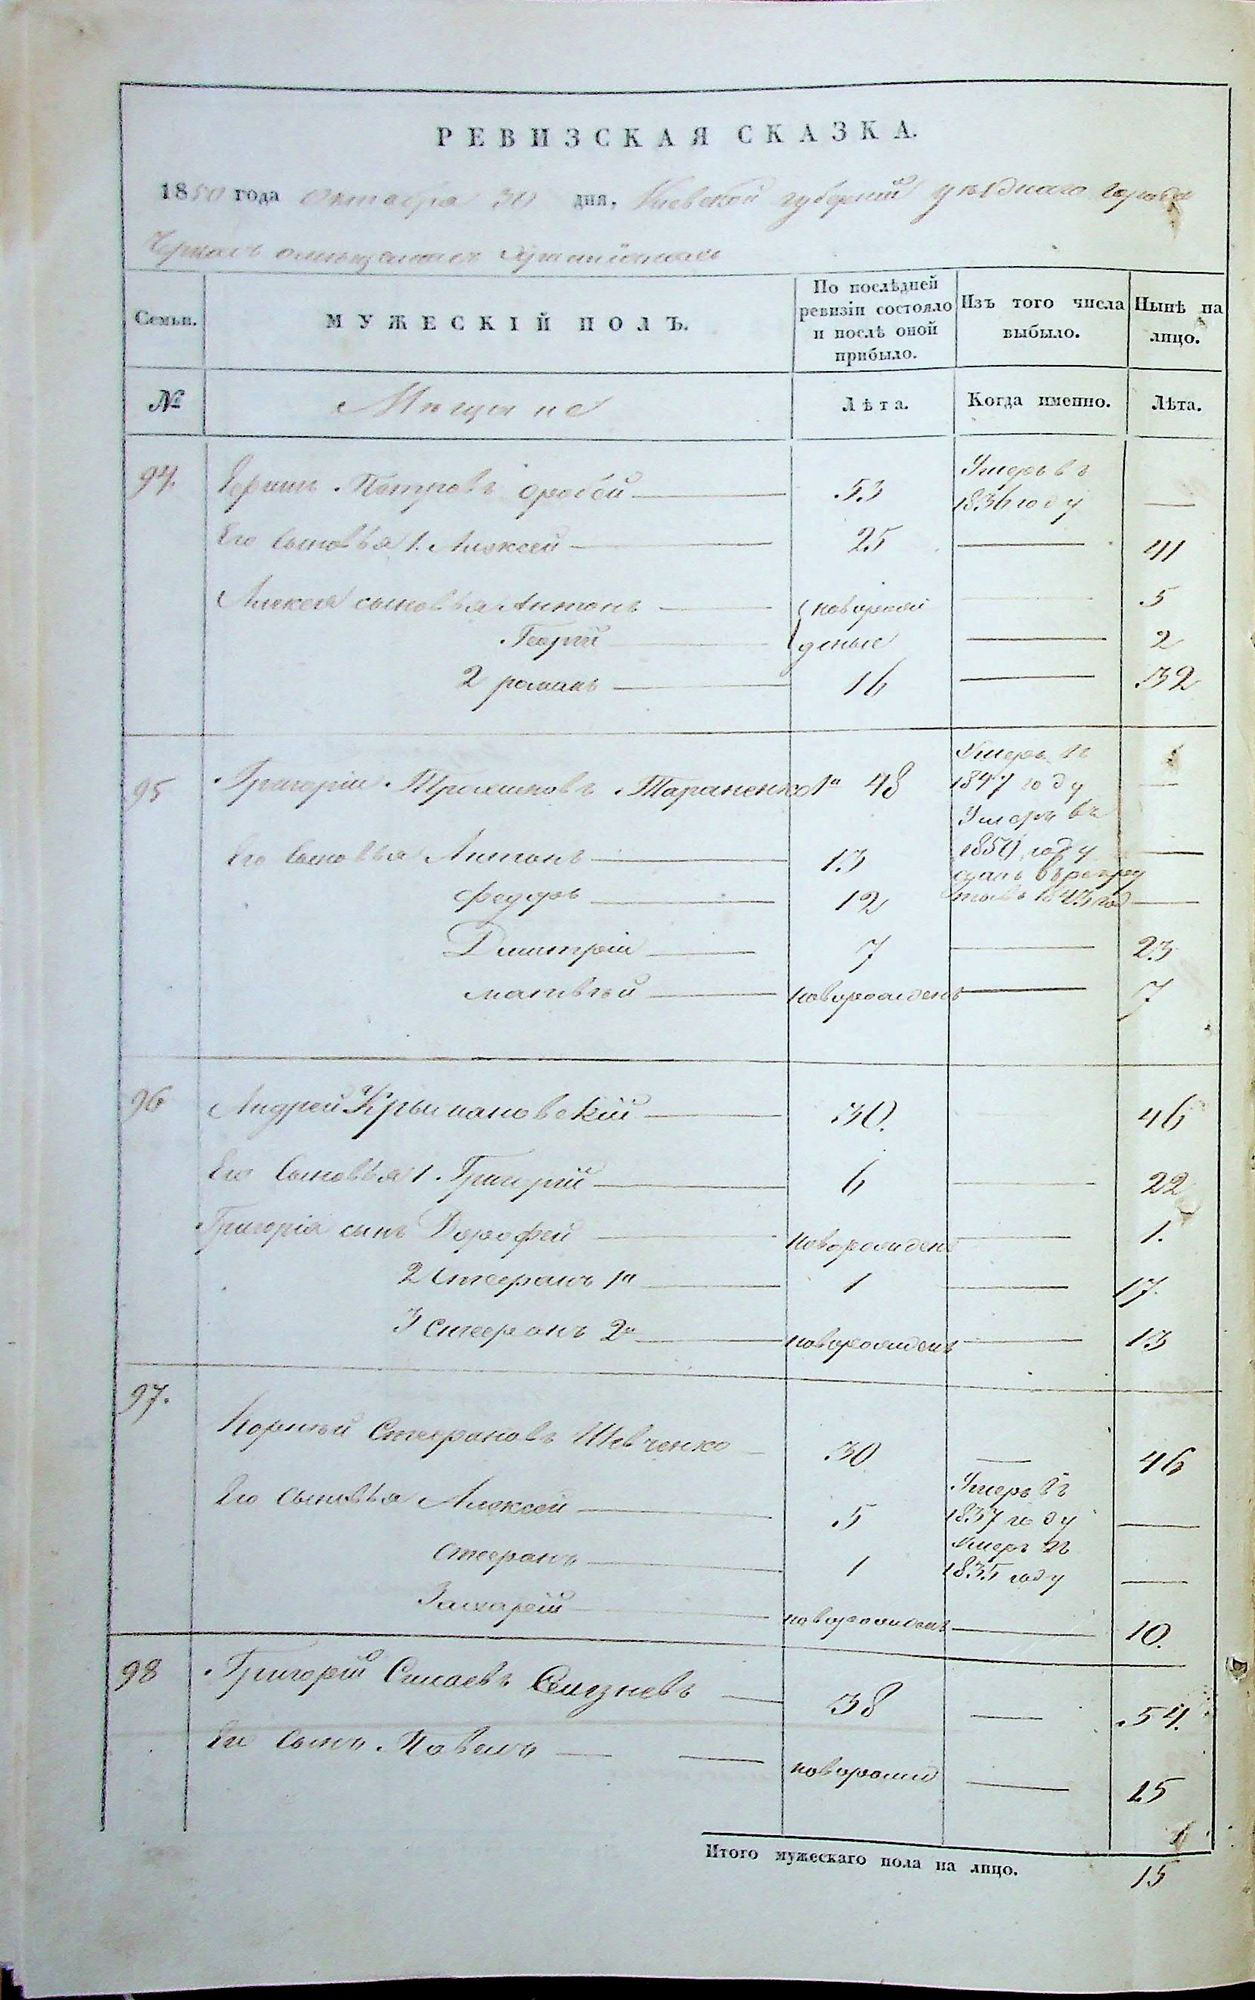 РЕВИЗСКАЯ СКАЗКА.
1850 года Октября 30 дня, Киевской губернiи уѣзднаго города
Черкасъ о мѣщанахъ христiянахъ
Семьи. МУЖЕСКIЙ ПОЛЪ. По послѣдней ревизiи состояло и послѣ оной прибыло. Изъ того числа выбыло. Нынѣ на лицо.
№ Мѣщане Лѣта. Когда именно. Лѣта.
94. Петровъ 53 Умеръ въ 1836 году —
Его сыновья 1. Алексей — 25 — 41
Алексея сыновья Антонъ — новорож — 5
Георгiй — деные — 2
2 романъ — 16 — 32
95 Григорiй Трофимовъ Тараненко 1й 48 Умеръ въ 1847 году —
Его сыновья Антонъ — 13 Умеръ въ 1850 году —
федоръ — 12 въ рекру 1843 год —
Дмитрiй — 7 — 23
матвѣй — новорожденъ — 7
96 Андрей Крыжановскiй — 30. 46
Его сыновья 1. Григорiй — 6 — 22
Григорiя сынъ Дорофей — новорожденъ — 1.
2 Стефанъ 1й — 1 — 17.
3 Стефанъ 2й — новорожденъ — 13
97. Корнѣй Стефановъ Шевченко — 30 — 46
Его сыновья Алексей — 5 Умеръ въ 1837 году —
Стефанъ — 1 Умеръ въ 1835 году —
Захарiй — новорожденъ — 10.
98 Григорiй Силаевъ Селезневъ — 38 — 54.
Его сынъ Павелъ — — новорожд — 15
Итого мужескаго пола на лицо. 15